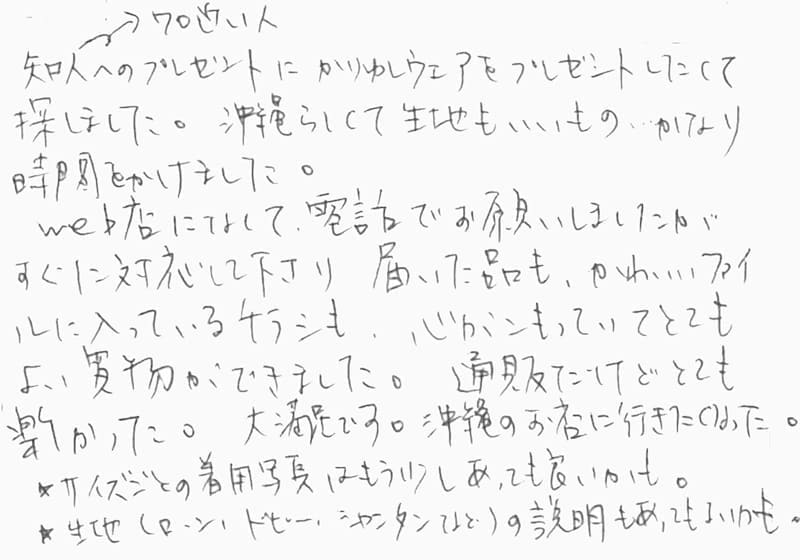 →70近い人
知人へのプレゼントにかりゆしウェアをプレゼントしたくて
探しました。沖縄らしくて生地もいいもの…かなり
時間をかけました。
web店になくて、電話でお願いしましたが
すぐに対応して下さり 届いた品も、かわいいファイ
ルに入っているチラシも、心がこもっていてとても
よい買物ができました。通販だけどとても
楽しかった。大満足です。沖縄のお店に行きたくなった。
★サイズごとの着用写真はもう少しあっても良いかも。
★生地(ローン、ドビー、シャンタンなど)の説明もあってもよいかも。